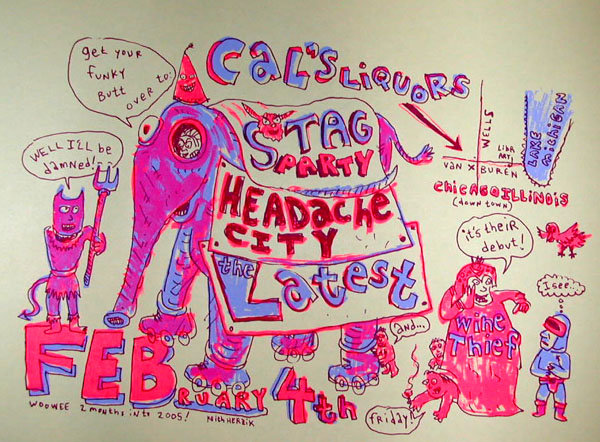 get your
funky
butt
over to:
CaL'S LiQUORS
WELL I'LL be
damned!
STAG
PARTY
HEADache
CITY
the Latest
WELLS
LIBR
ARY
VAN X BUREN
LAKE
MICHIGAN
CHICAGO ILLINOIS
(down town)
it's theiR
debut!
I see..
WiNe
THieF
and...
friday!
FEBRUARY 4th
WOOWEE 2 months into 2005!